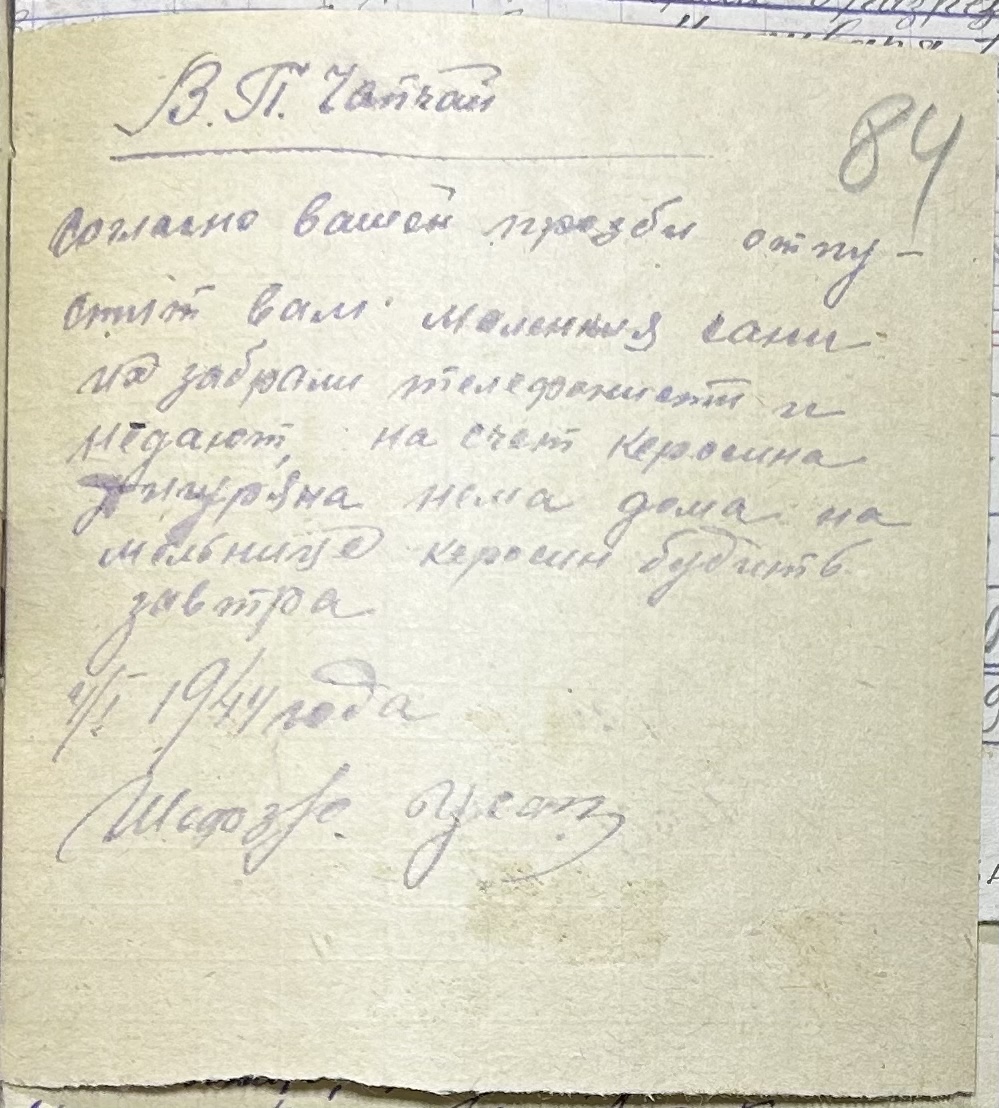 В. П. Чапчай
84
Согласно вашей прозби отпу-
стит вам маленкия сани
их забрали телефонисти и
недают, на счет керосина
нема дома на
мельнице керосин будить
завтра
4/I 1944 года